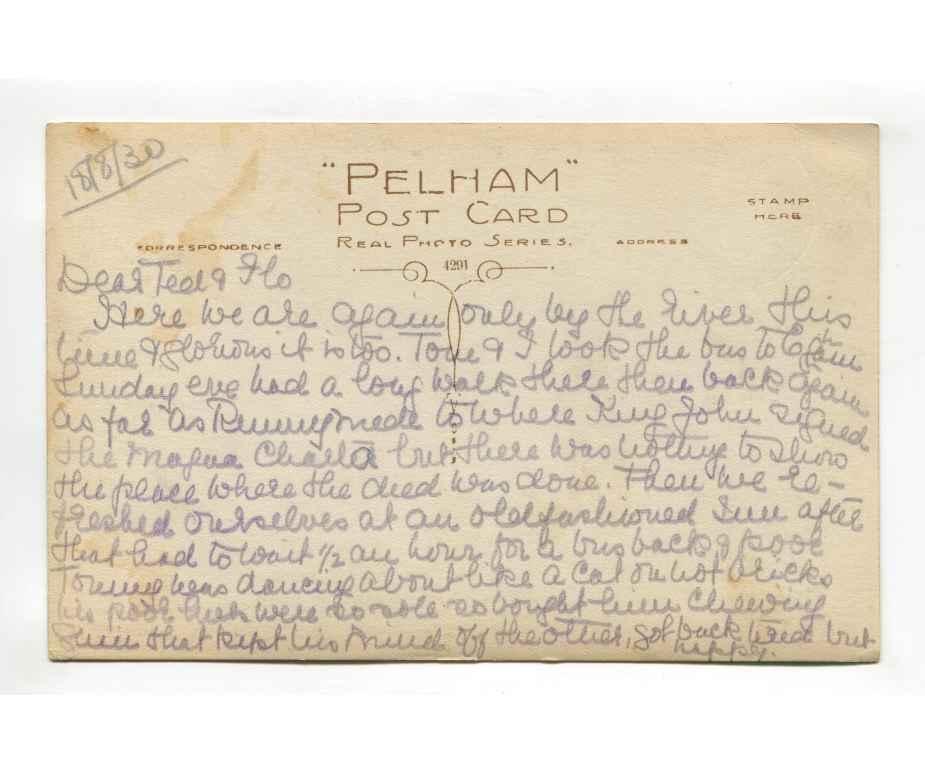 18/8/30
"PELHAM"
POST CARD
REAL PHOTO SERIES.
STAMP
HERE
CORRESPONDENCE
ADDRESS
4291
Dear Ted & Flo
Here we are again only by the river this
time & glorious it is too. Tom & I took the bus to Egham
Sunday eve had a long walk there then back again
as far as Runnymede to where King John signed
the Magna Charta but there was nothing to show
the place where the deed was done. Then we re-
freshed ourselves at an old fashioned Inn after
that had to wait 1/2 an hour for a bus back & poor
Tommy was dancing about like a cat on hot bricks
his poor feet were so sore so bought him chewing
Gum that kept his mind off the other, got back tired but
happy.